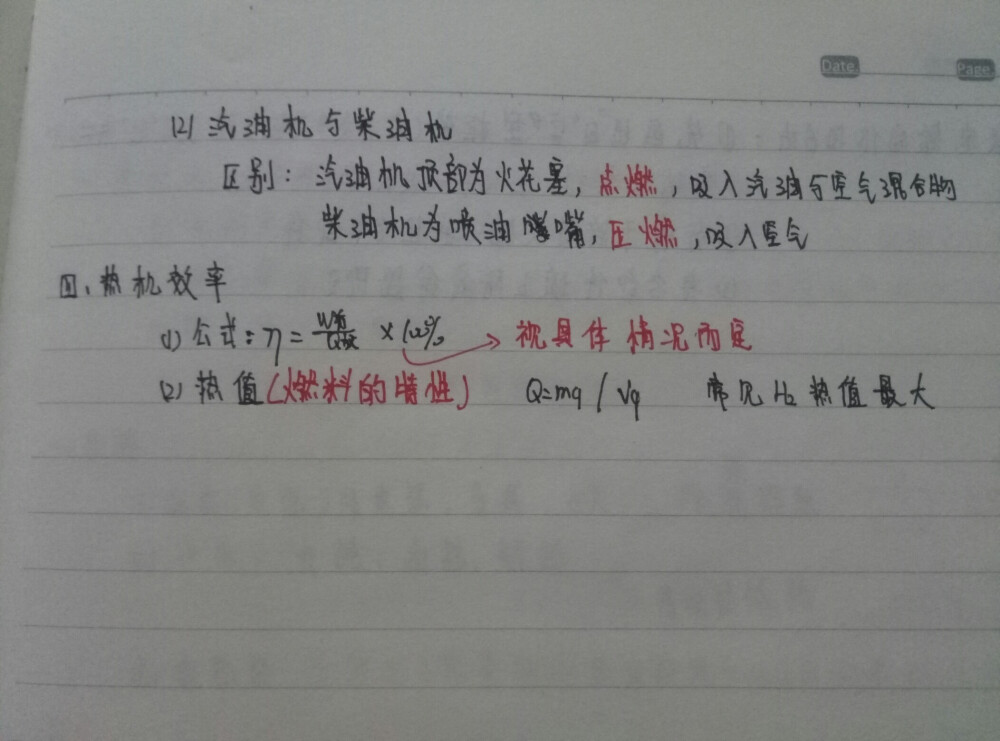 Date
Page
(2) 汽油机与柴油机
区别：汽油机顶部为火花塞，点燃，吸入汽油与空气混合物
柴油机为喷油嘴，压燃，吸入空气
四、热机效率
(1) 公式：η = W有/Q放 × 100% → 视具体情况而定
(2) 热值(燃料的特性) Q=mq / Vq 常见H₂热值最大